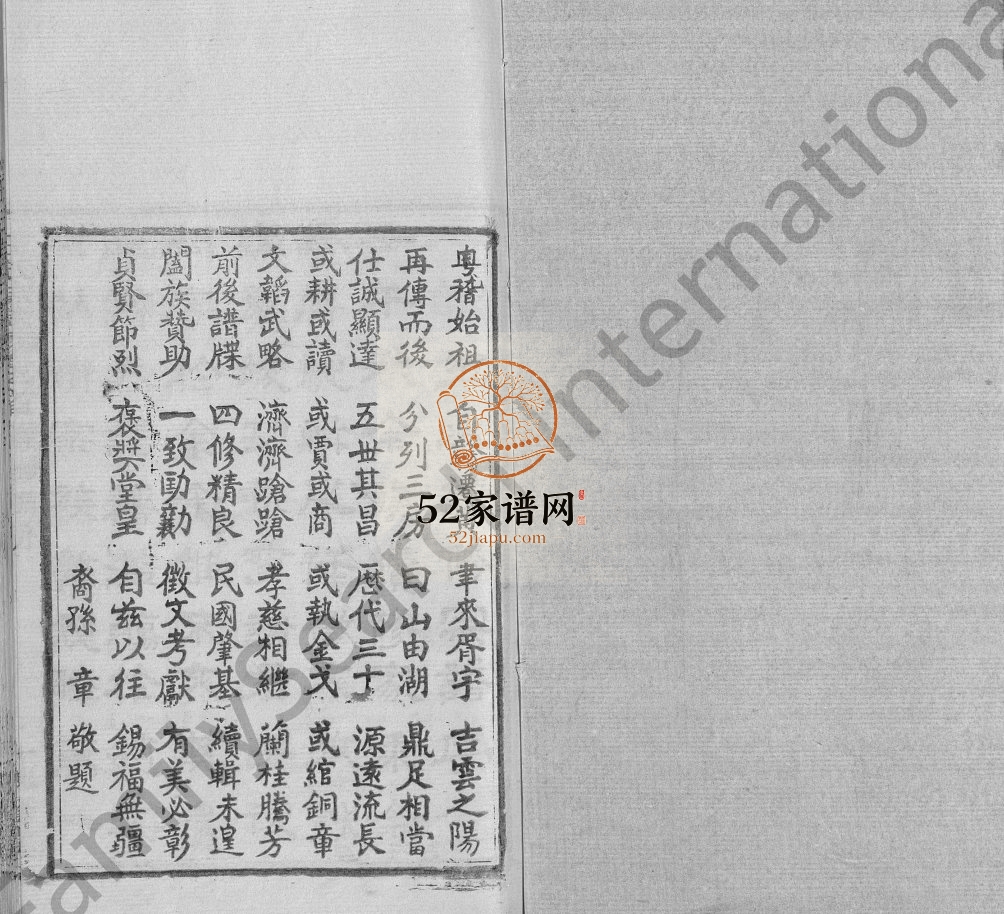 粵稽始祖 自 聿來胥宇 吉雲之陽
再傳而後 分列三房 曰山由湖 鼎足相當
仕誠顯達 五世其昌 歷代三十 源遠流長
或耕或讀 或賈或商 或執金戈 或綰銅章
文韜武略 濟濟蹌蹌 孝慈相繼 蘭桂騰芳
前後譜牒 四修精良 民國肇基 續輯未遑
闔族贊助 一致勷 徵文考獻 有美必彰
貞賢節烈 褒獎堂皇 自茲以往 錫福無疆
裔孫 章 敬題
52家谱网
52jiapu.com
FamilySearch International